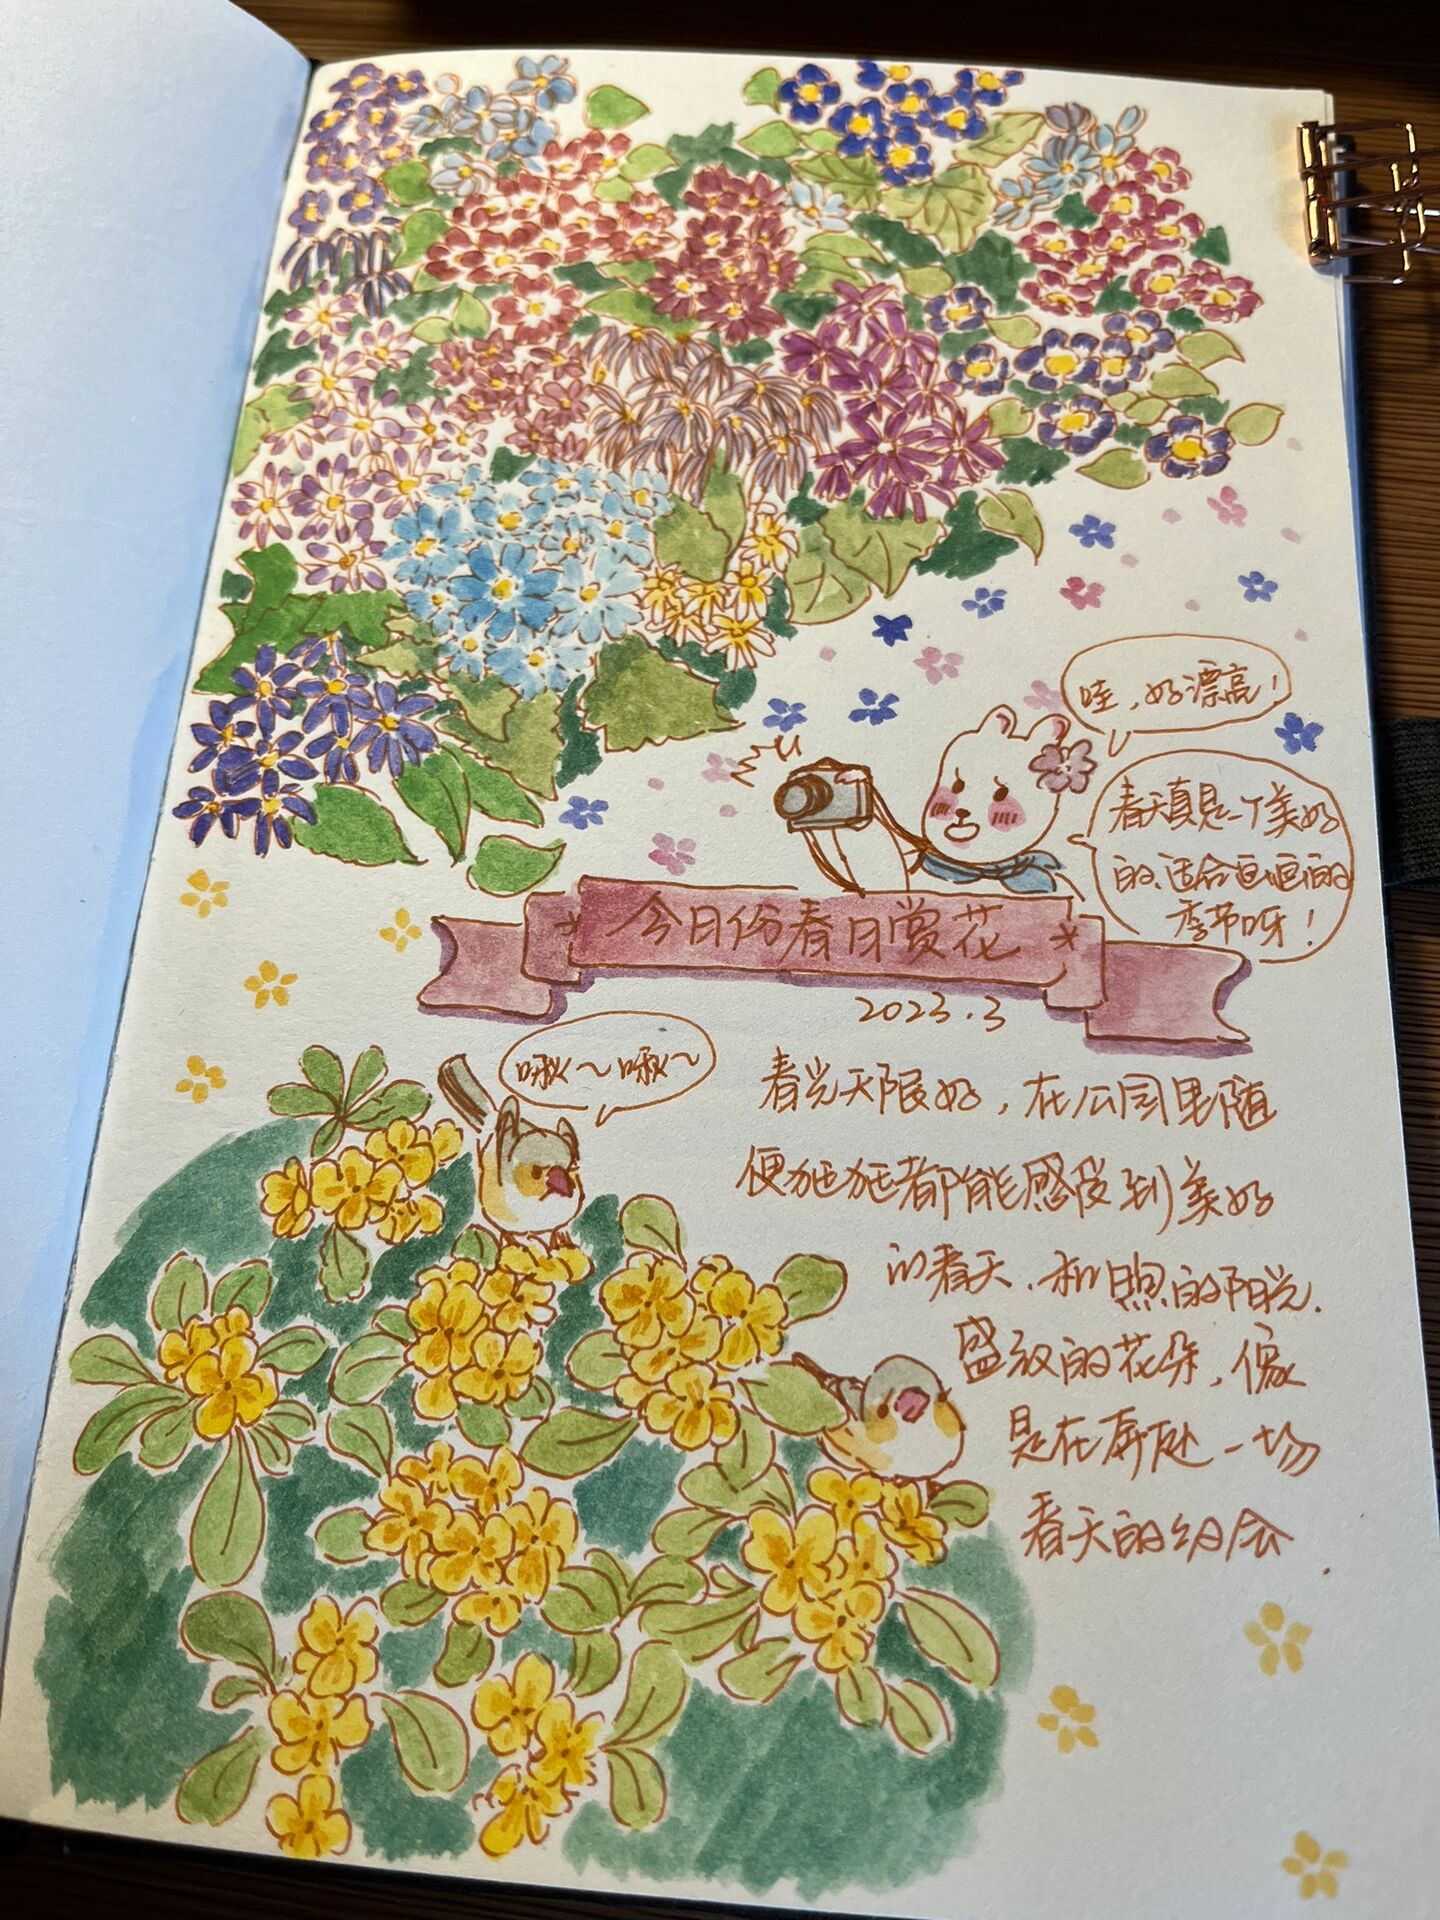 哇，好漂亮！
春天真是一个美好
的、适合画画的
季节呀！
今日份春日赏花
2023.3
啾～啾～
春光无限好，在公园里随
便逛逛都能感受到美好
的春天，和煦的阳光，
盛放的花朵，像
是在奔赴一场
春天的约会